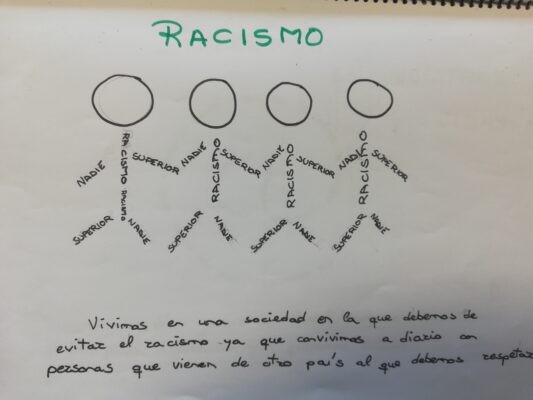 RACISMO
NADIE RACISMO RACISMO SUPERIOR SUPERIOR NADIE
NADIE RACISMO SUPERIOR SUPERIOR NADIE
NADIE RACISMO SUPERIOR SUPERIOR NADIE
NADIE RACISMO SUPERIOR SUPERIOR NADIE
Vivimos en una sociedad en la que debemos de
evitar el racismo ya que convivimos a diario con
personas que vienen de otro país al que debemos respetar